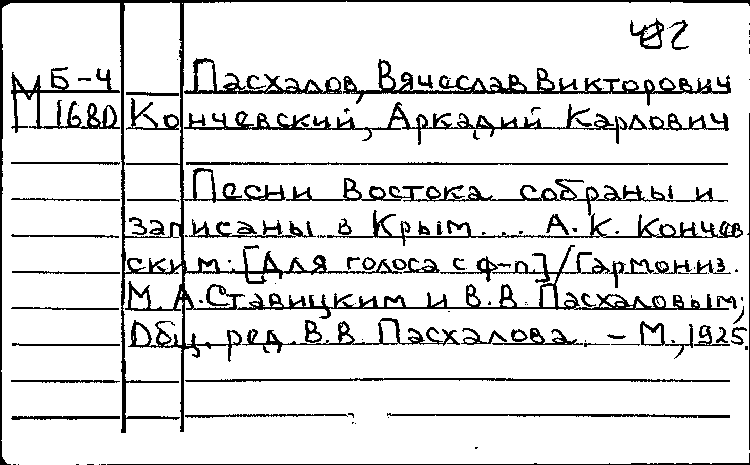 482
М Б-4 Пасхалов, Вячеслав Викторович
1680 Кончевский, Аркадий Карлович
Песни Востока собраны и
записаны в Крым... А.К. Кончев
ским: [Для голоса с ф-п]/Гармониз.
М.А.Ставицким и В.В. Пасхаловым;
Общ. ред. В.В. Пасхалова. – М., 1925.